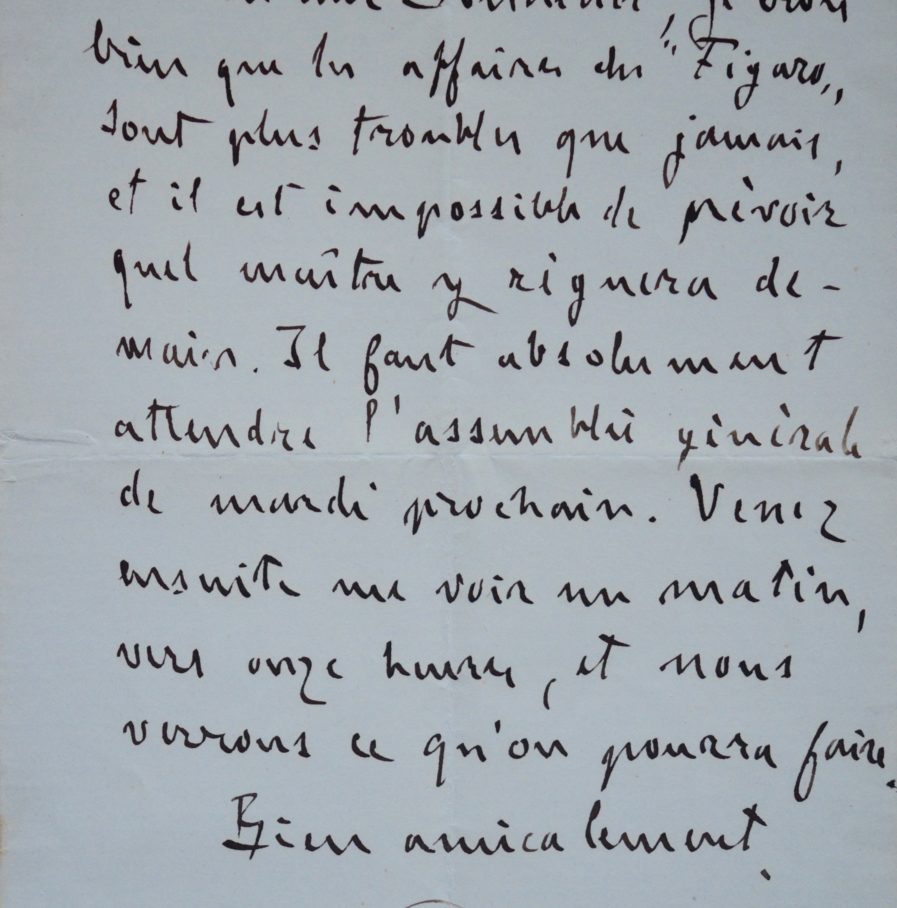 je crois
bien que les affaires du "Figaro„
sont plus troubles que jamais,
et il est impossible de prévoir
quel maître y règnera de-
main. Il faut absolument
attendre l'assemblée générale
de mardi prochain. Venez
ensuite me voir un matin,
vers onze heures, et nous
verrons ce qu'on pourra faire.
Bien amicalement.